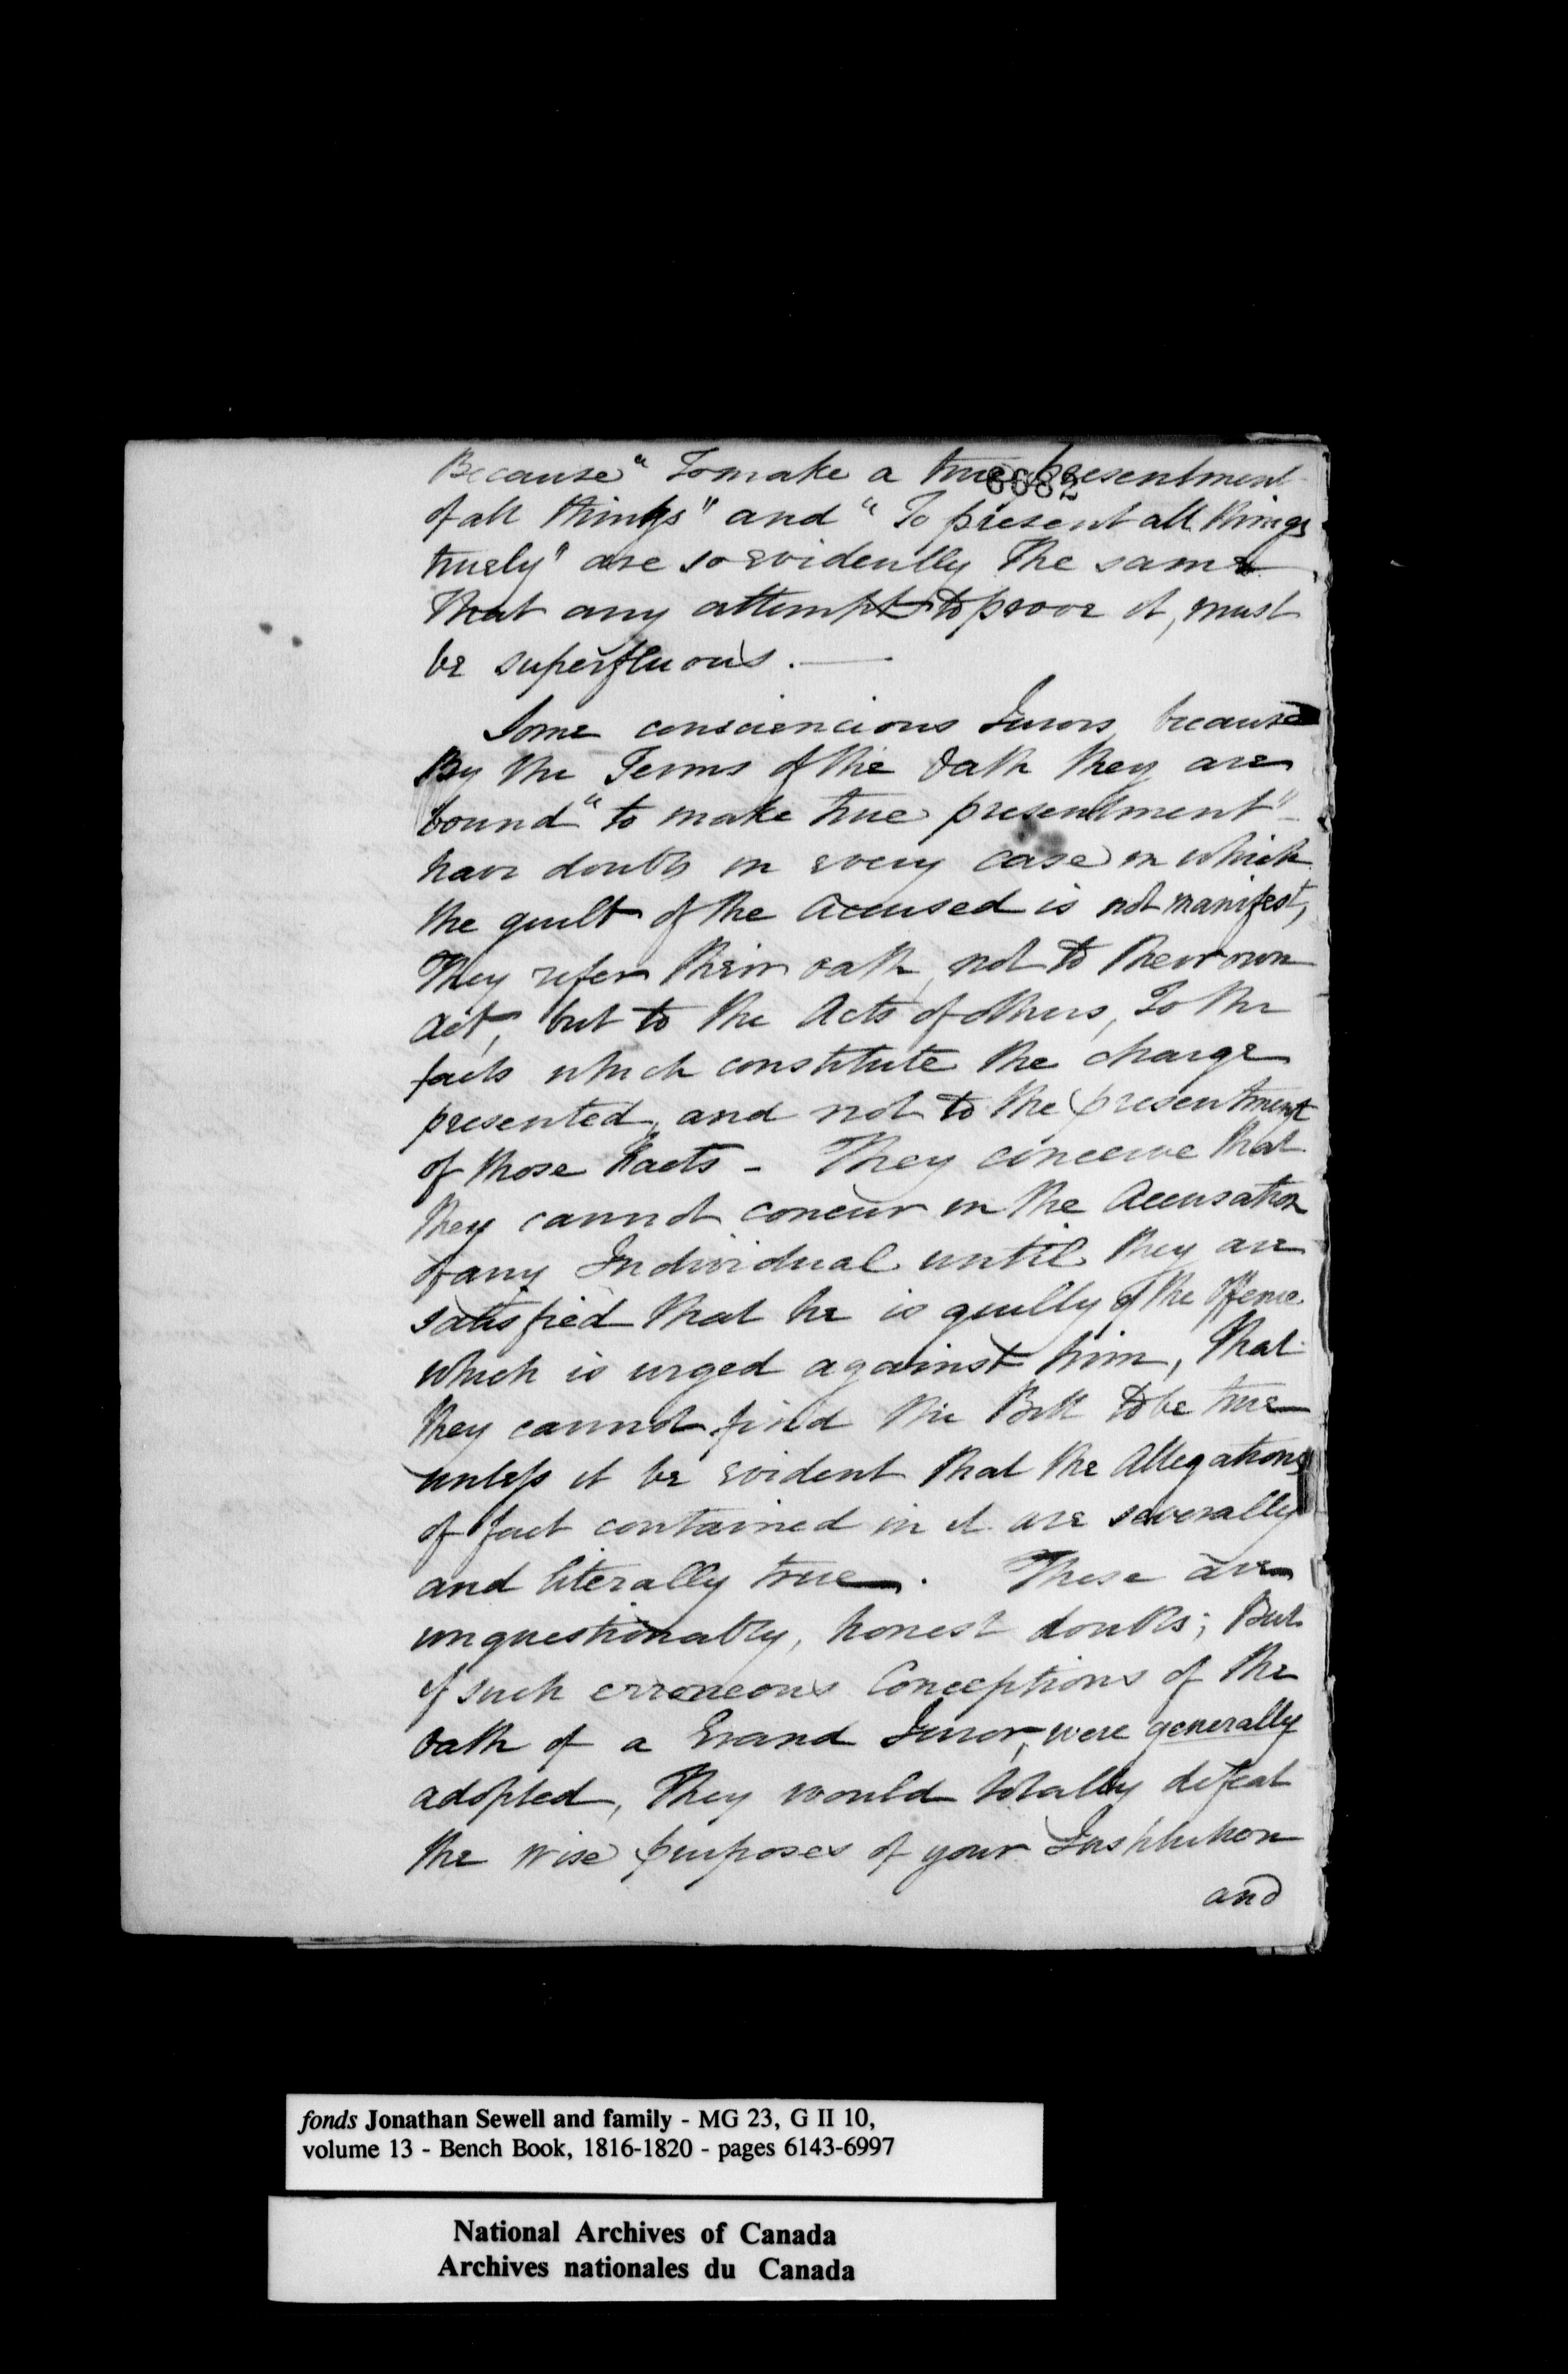 Because "To make a true presentment
6682
of all things" and "To present all things
truely" are so evidently the same
that any attempt to prove it, must
be superfluous. —
Some consciencious Jurors, because
By the Terms of the Oath they are
bound "to make true presentment" -
have doubts in every case in which
the guilt of the Accused is not manifest,
They refer their oath, not to their own
Act, but to the Acts of others, To the
facts which constitute the charge
presented, and not to the presentment
of those Facts - They conceive that
they cannot concur in the Accusation
of any Individual until they are
satisfied that he is guilty of the Offence
which is urged against him, that
they cannot find the Bill to be true
unless it be evident that the Allegations
of fact contained in it are severally
and literally true. These are
unquestionably, honest doubts; But
if such erroneous Conceptions of the
Oath of a Grand Juror, were generally
adopted, They would totally defeat
the wise purposes of your Institution
and
fonds Jonathan Sewell and family - MG 23, G II 10,
volume 13 - Bench Book, 1816-1820 - pages 6143-6997
National Archives of Canada
Archives nationales du Canada